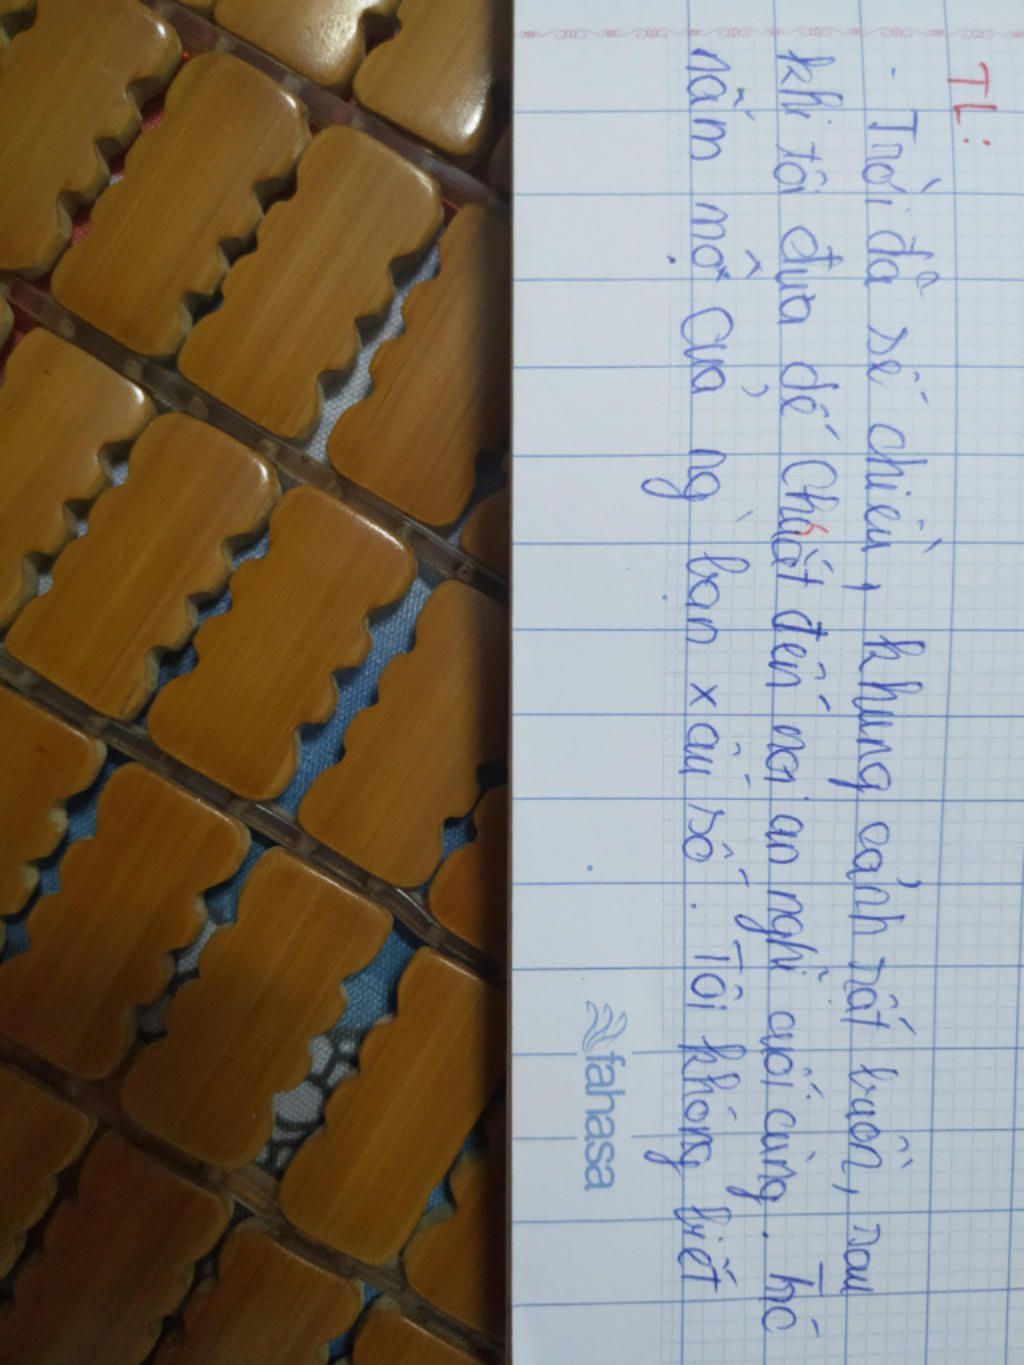 TL:
- Trời đã sế chiều, khung cảnh rất buồn, sau
khi tôi đưa dế Choắt đến nơi an nghỉ cuối cùng. Tôi
nằm mồ của ng bạn xấu số. Tôi không biết
fahasa